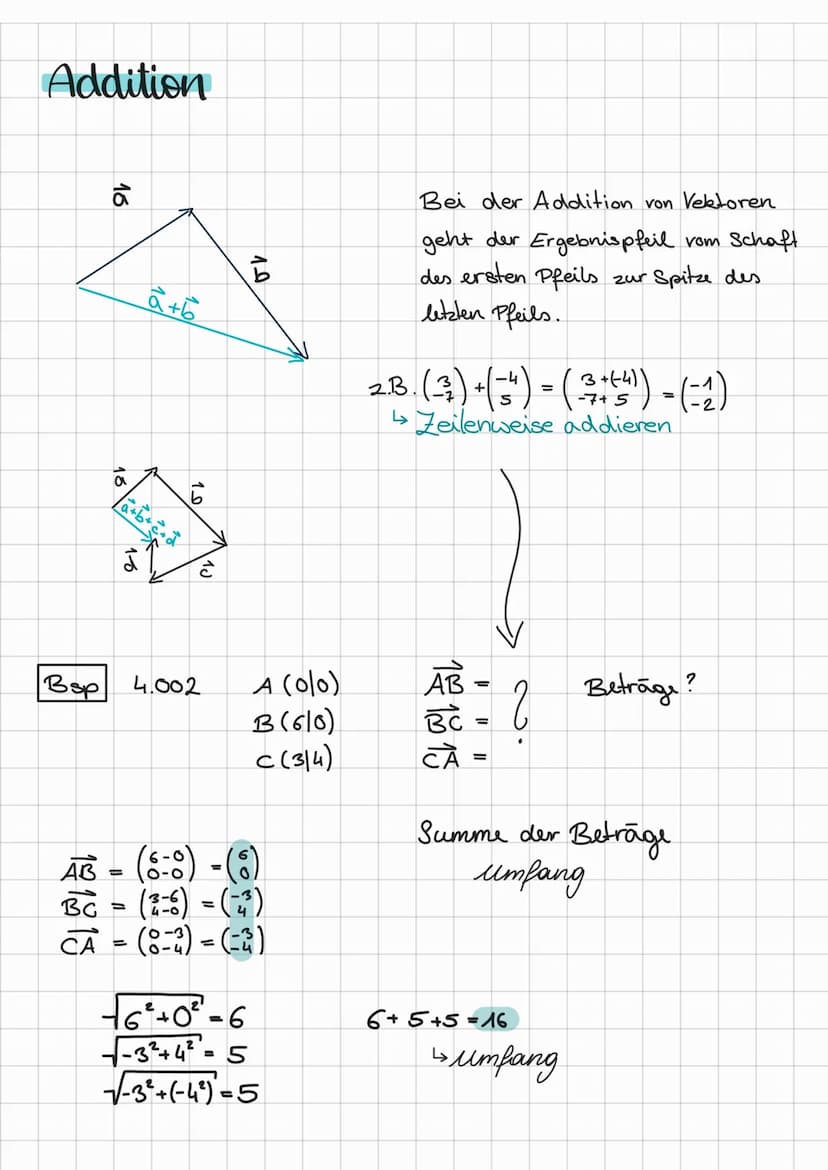 Addition
a⃗
b⃗
a⃗+b⃗
Bei der Addition von Vektoren
geht der Ergebnispfeil vom Schaft
des ersten Pfeils zur Spitze des
letzten Pfeils.
z.B. (3 / -7) + (-4 / 5) = (3+(-4) / -7+5) = (-1 / -2)
↳ Zeilenweise addieren
a⃗
b⃗
a⃗+b⃗+c⃗+d⃗
d⃗
c⃗
Bsp 4.002 A(0|0) AB⃗ = ? Beträge?
B(6|0) BC⃗ =
C(3|4) CA⃗ =
Summe der Beträge
Umfang
AB⃗ = (6-0 / 0-0) = (6 / 0)
BC⃗ = (3-6 / 4-0) = (-3 / 4)
CA⃗ = (0-3 / 0-4) = (-3 / -4)
√6²+0² = 6 6+5+5=16
√-3²+4² = 5 ↳Umfang
√-3²+(-4²) = 5